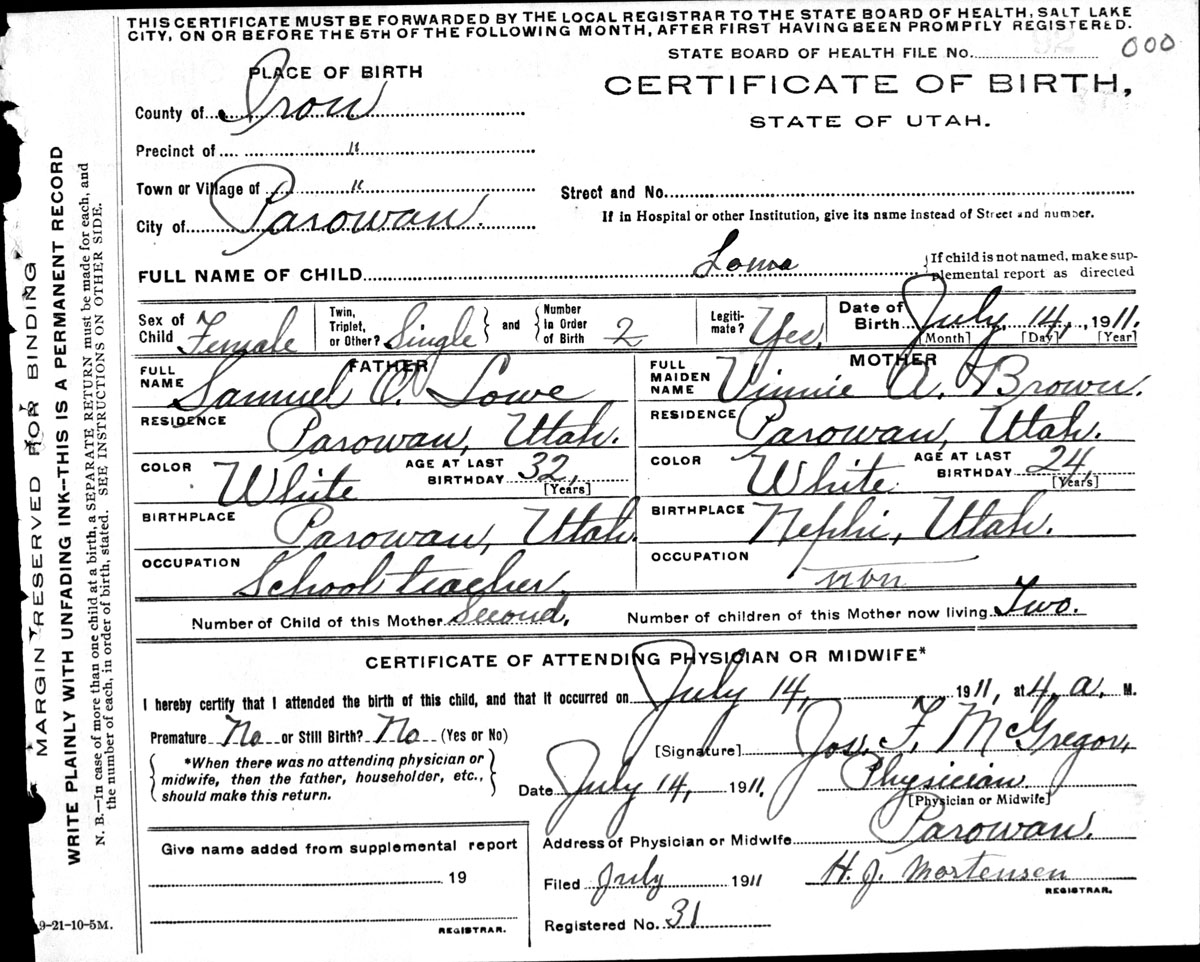 THIS CERTIFICATE MUST BE FORWARDED BY THE LOCAL REGISTRAR TO THE STATE BOARD OF HEALTH, SALT LAKE
CITY, ON OR BEFORE THE 5TH OF THE FOLLOWING MONTH, AFTER FIRST HAVING BEEN PROMPTLY REGISTERED.
STATE BOARD OF HEALTH FILE No. 000
PLACE OF BIRTH
CERTIFICATE OF BIRTH,
STATE OF UTAH.
County of Iron
Precinct of "
Town or Village of "
Street and No.
City of Parowan.
If in Hospital or other Institution, give its name instead of Street and number.
FULL NAME OF CHILD Loma
If child is not named, make sup-
plemental report as directed
Sex of Child Female
Twin, Triplet, or Other? Single and Number in Order of Birth 2
Legiti-mate? Yes.
Date of Birth July, 14, 1911.
[Month] [Day] [Year]
FATHER
MOTHER
FULL NAME Samuel O. Lowe
FULL MAIDEN NAME Vinnie A. Brown.
RESIDENCE Parowan, Utah.
RESIDENCE Parowan, Utah.
COLOR White AGE AT LAST BIRTHDAY 32,
[Years]
COLOR White AGE AT LAST BIRTHDAY 24,
[Years]
BIRTHPLACE Parowan, Utah.
BIRTHPLACE Nephi, Utah.
OCCUPATION School teacher.
OCCUPATION non
Number of Child of this Mother Second.
Number of children of this Mother now living Two.
CERTIFICATE OF ATTENDING PHYSICIAN OR MIDWIFE*
I hereby certify that I attended the birth of this child, and that it occurred on July 14, 1911, at 4, a. M.
Premature No or Still Birth? No (Yes or No)
[Signature] Jos. F. McGregor,
*When there was no attending physician or
midwife, then the father, householder, etc.,
should make this return.
Date July 14, 1911, Physician
[Physician or Midwife]
Address of Physician or Midwife Parowan.
Give name added from supplemental report
19
REGISTRAR.
Filed July 1911 H. J. Mortensen
REGISTRAR.
Registered No. 31
9-21-10-5M.
MARGIN RESERVED FOR BINDING
WRITE PLAINLY WITH UNFADING INK—THIS IS A PERMANENT RECORD
N. B.—In case of more than one child at a birth, a SEPARATE RETURN must be made for each, and
the number of each, in order of birth, stated. SEE INSTRUCTIONS ON OTHER SIDE.